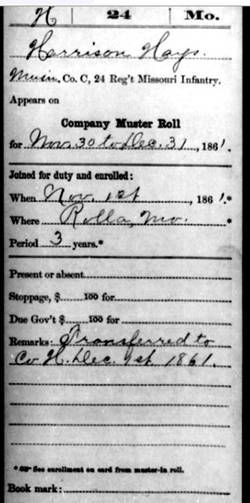 H 24 Mo.
Harrison Hays.
Musin, Co. C, 24 Reg't Missouri Infantry.
Appears on
Company Muster Roll
for Nov. 30 to Dec. 31, 1861.
Joined for duty and enrolled:
When Nov. 1st, 1861.*
Where Rolla, Mo. *
Period 3 years.*
Present or absent
Stoppage, $ 100 for
Due Gov't $ 100 for
Remarks: Transferred to
Co H. Dec. 1st 1861.
* See enrollment on card from muster-in roll.
Book mark: